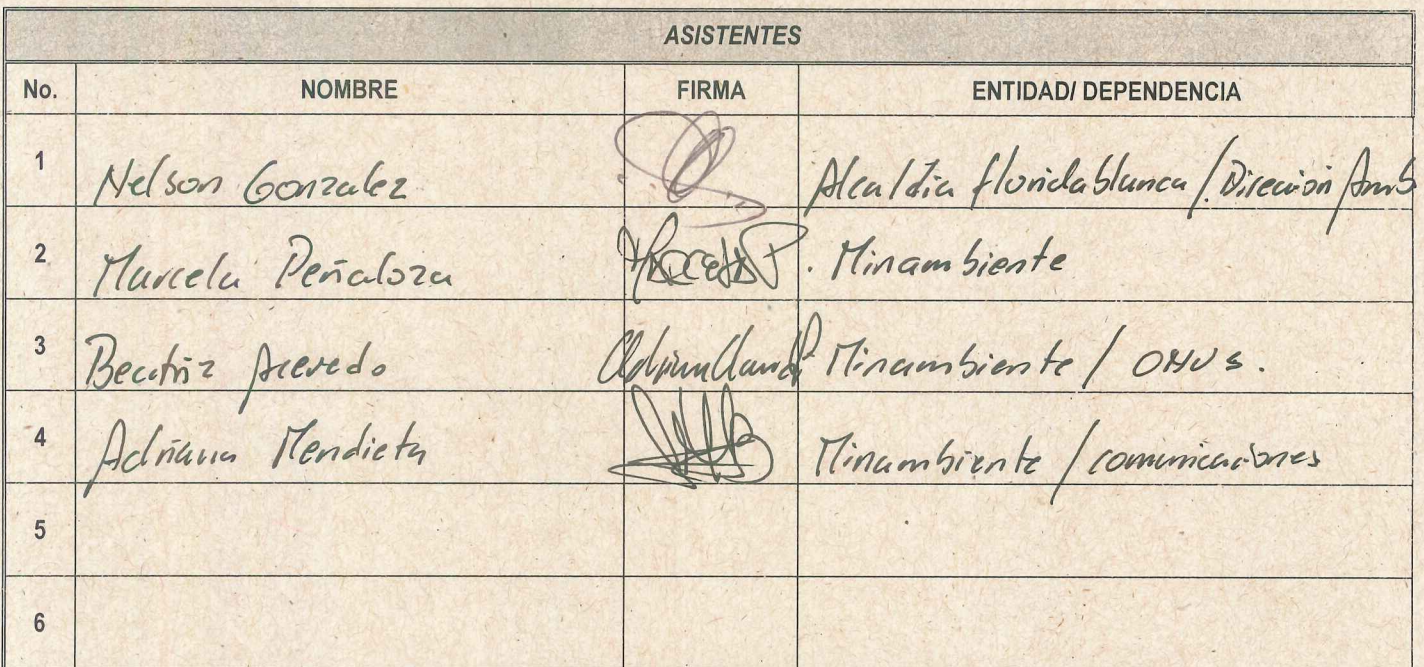 ASISTENTES
No. NOMBRE FIRMA ENTIDAD/ DEPENDENCIA
1 Nelson Gonzalez Alcaldia floridablanca / Direccion Amb
2 Marcela Peñaloza Marcela P. Minambiente
3 Beatriz Acevedo Minambiente /
4 Adriana Mendieta Minambiente / comunicaciones
5
6